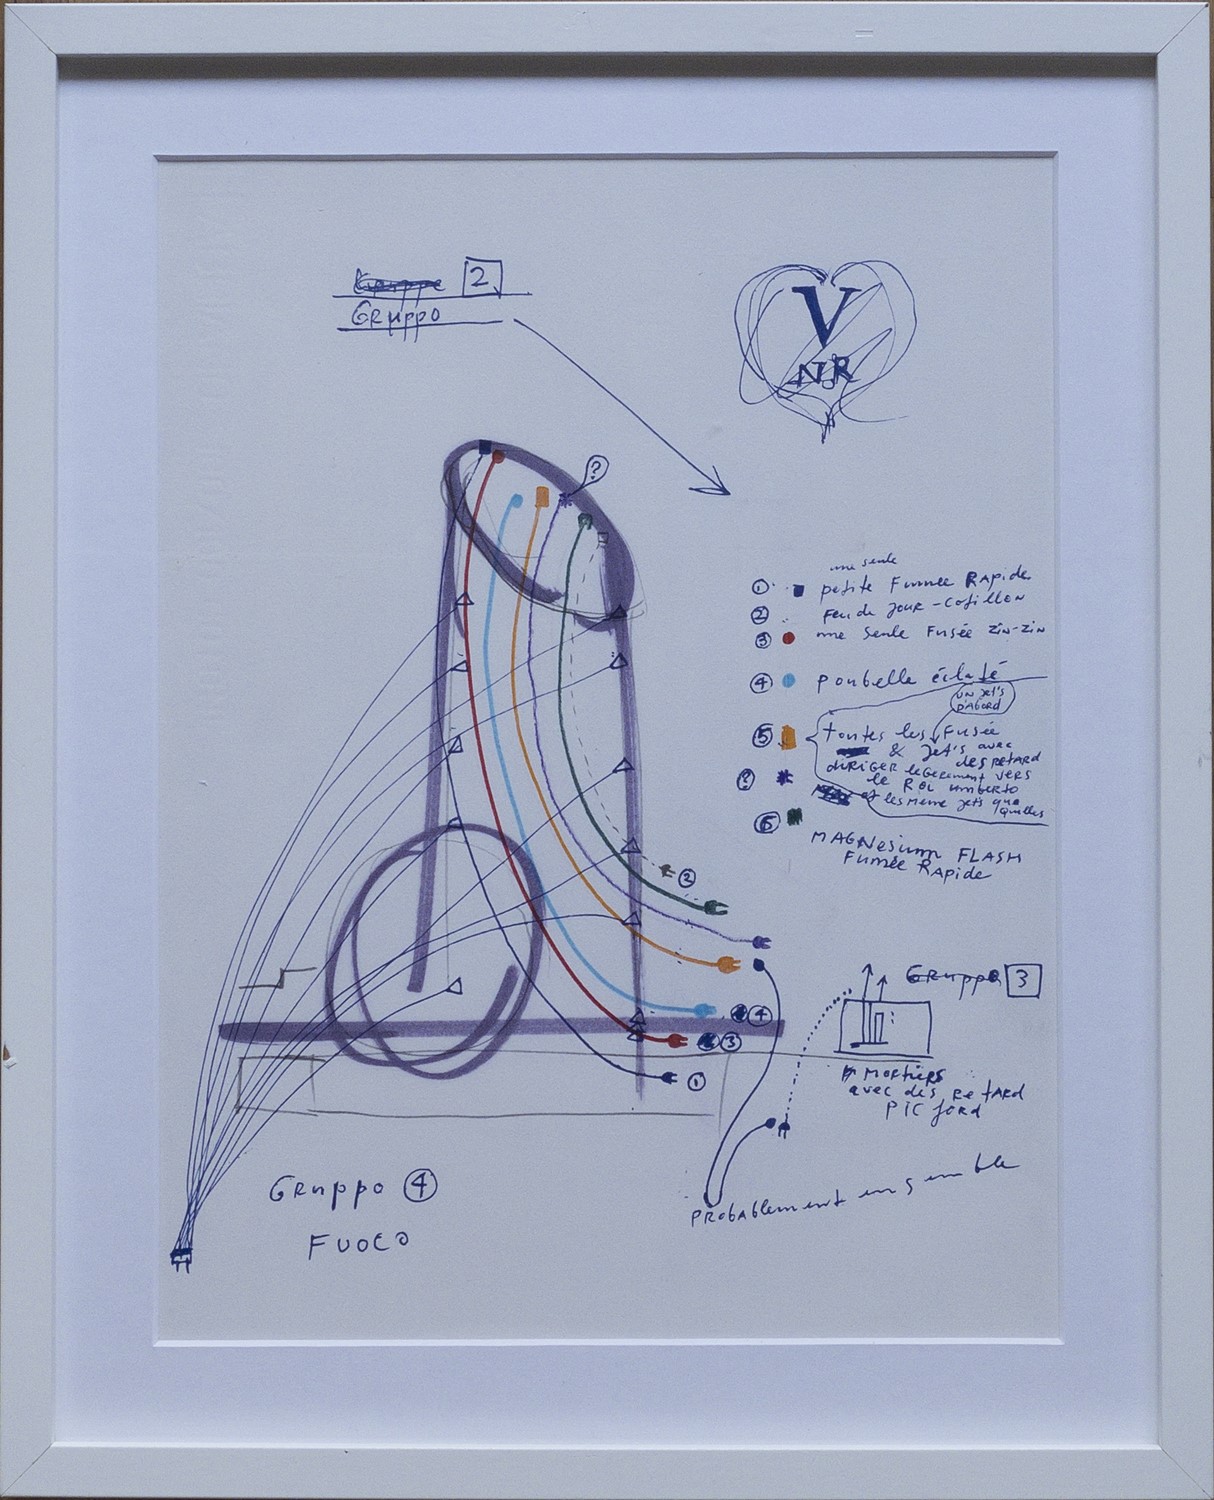 2
GRuppo
V
N.R
?
une seule
① petite Fumée RApide
② Feu de jour-Cotillon
③ une seule Fusée Zin-Zin
④ poubelle éclaté
UN Jet's
D'Abord
⑤ toutes les Fusée
& Jet's avec
des RetARd
diRiGER leGèrement veRs
? le Roi umberto
et les même Jets que
Quilles
⑥
MAGNesium FLASH
Fumée RApide
②
④
③
①
GRuppo 3
MoRtieRs
avec des RetARd
PIC foRd
PRobAblement ensemble
GRuppo ④
FUOCO